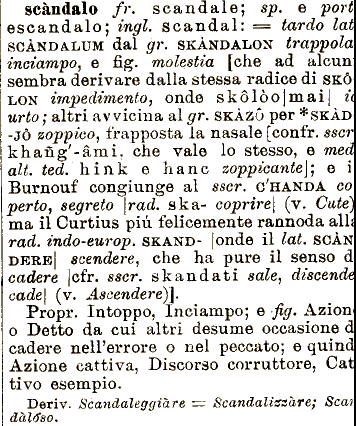 scàndalo fr. scandale; sp. e port
escandalo; ingl. scandal: = tardo lat
SCÀNDALUM dal gr. SKÀNDALON trappola
inciampo, e fig. molestia [che ad alcun
sembra derivare dalla stessa radice di SKÔ
LON impedimento, onde skôlòo|mai|
urto; altri avvicina al gr. SKÀZÔ per *SKÀD
-JÔ zoppico, frapposta la nasale [confr. sscr
khañg'-âmi, che vale lo stesso, e med
alt. ted. hink e hanc zoppicante]; e i
Burnouf congiunge al sscr. C'HANDA co
perto, segreto |rad. ska- coprire| (v. Cute)
ma il Curtius piú felicemente rannoda alla
rad. indo-europ. SKAND- |onde il lat. SCÀN
DERE| scendere, che ha pure il senso d
cadere |cfr. sscr. skandati sale, discende
cade| (v. Ascendere)].
Propr. Intoppo, Inciampo; e fig. Azion
o Detto da cui altri desume occasione d
cadere nell'errore o nel peccato; e quind
Azione cattiva, Discorso corruttore, Cat
tivo esempio.
Deriv. Scandaleggiàre = Scandalizzàre; Scan
dalóso.